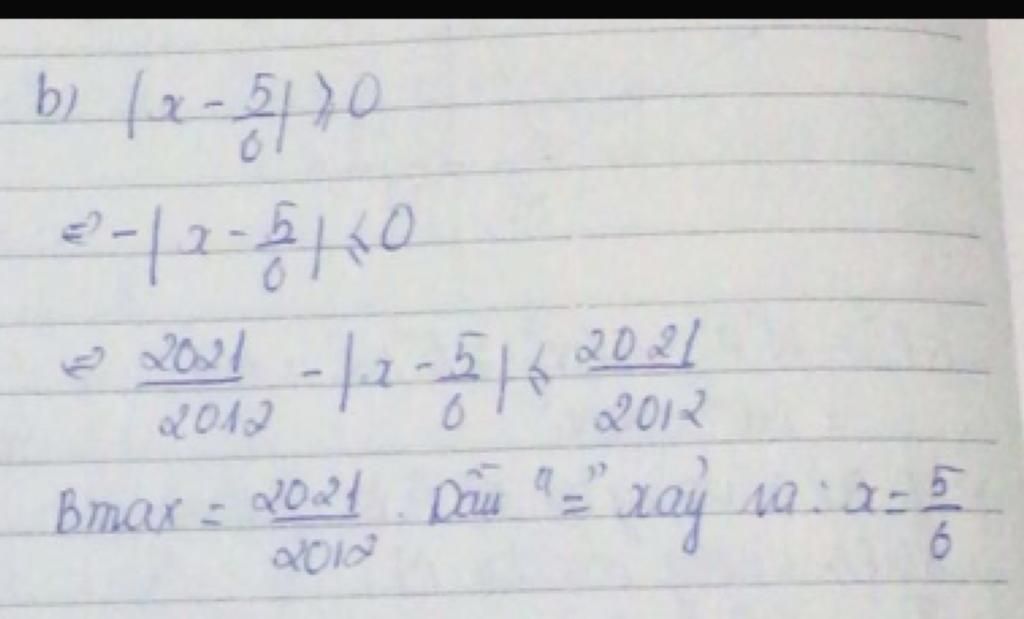 b) |x - 5/6| ⩾ 0
⇔ -|x - 5/6| ⩽ 0
⇔ 2021/2012 - |x - 5/6| ⩽ 2021/2012
Bmax = 2021/2012. Dấu "=" xảy ra: x = 5/6